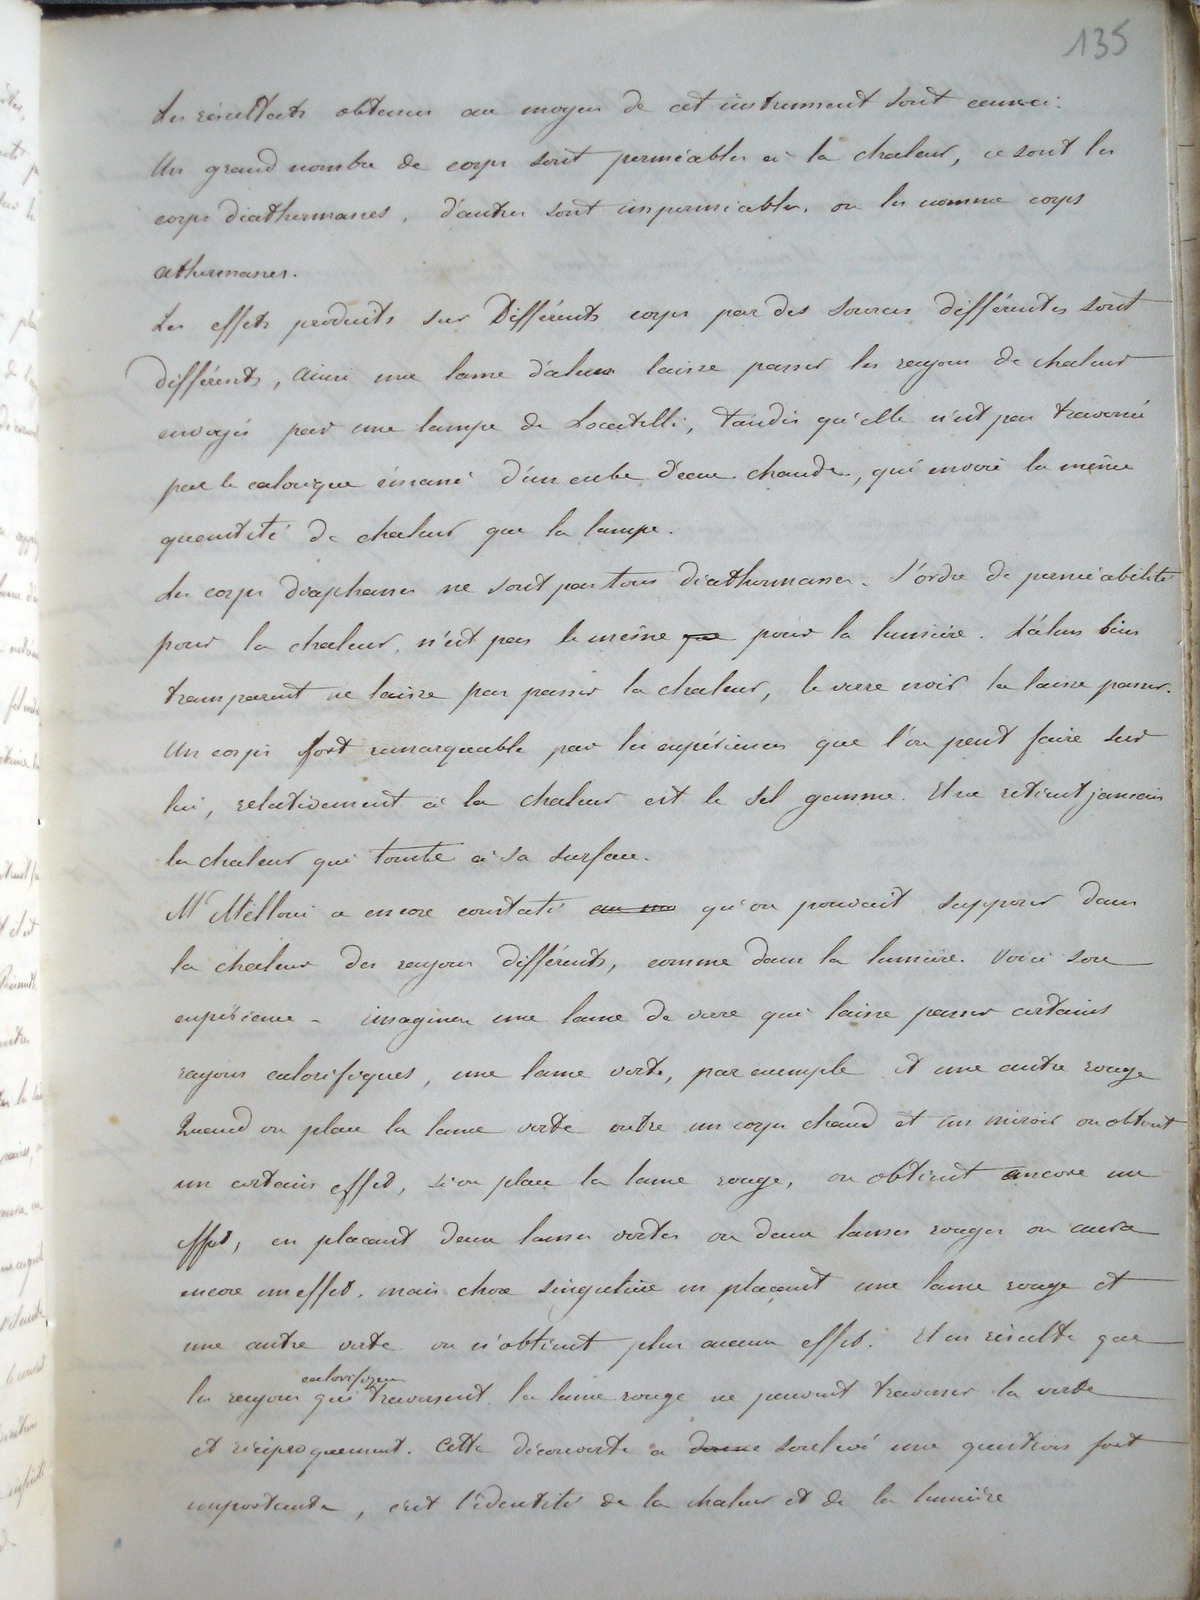 135
Les résultats obtenus au moyen de cet instrument sont ceux-ci.
Un grand nombre de corps sont perméables à la chaleur, ce sont les
corps diathermanes, d'autres sont imperméables, on les nomme corps
athermanes.
Les effets produits sur Différents corps par des sources différentes sont
différents, Ainsi une lame d'alun laisse passer les rayons de chaleur
envoyés par une lampe de Locatelli, tandis qu'elle n'est pas traversée
par le calorique émané d'un cube d'eau chaude, qui envoie la même
quantité de chaleur que la lampe.
Les corps diaphanes ne sont pas tous diathermanes. L'ordre de perméabilité
pour la chaleur, n'est pas le même que pour la lumière. L'alun bien
transparent ne laisse pas passer la chaleur, le verre noir la laisse passer.
Un corps fort remarquable par les expériences que l'on peut faire sur
lui, relativement à la chaleur est le sel gemme. Il ne retient jamais
la chaleur qui tombe à sa surface.
Mr Mélloni a encore constaté qu'on pouvait supposer dans
la chaleur des rayons différents, comme dans la lumière. Voici son
expérience - imaginez une lame de verre qui laisse passer certains
rayons calorifiques, une lame verte, par exemple et une autre rouge
Quand on place la lame verte entre un corps chaud et un miroir on obtient
un certain effet, si on place la lame rouge, on obtient encore un
effet, en plaçant deux lames vertes ou deux lames rouges on aura
encore un effet. mais chose singulière en plaçant une lame rouge et
une autre verte on n'obtient plus aucun effet. Il en résulte que
calorifiques
les rayons qui traversent la lame rouge ne peuvent traverser la verte
et réciproquement. Cette découverte a donné soulevé une question fort
importante, c'est l'identité de la chaleur et de la lumière